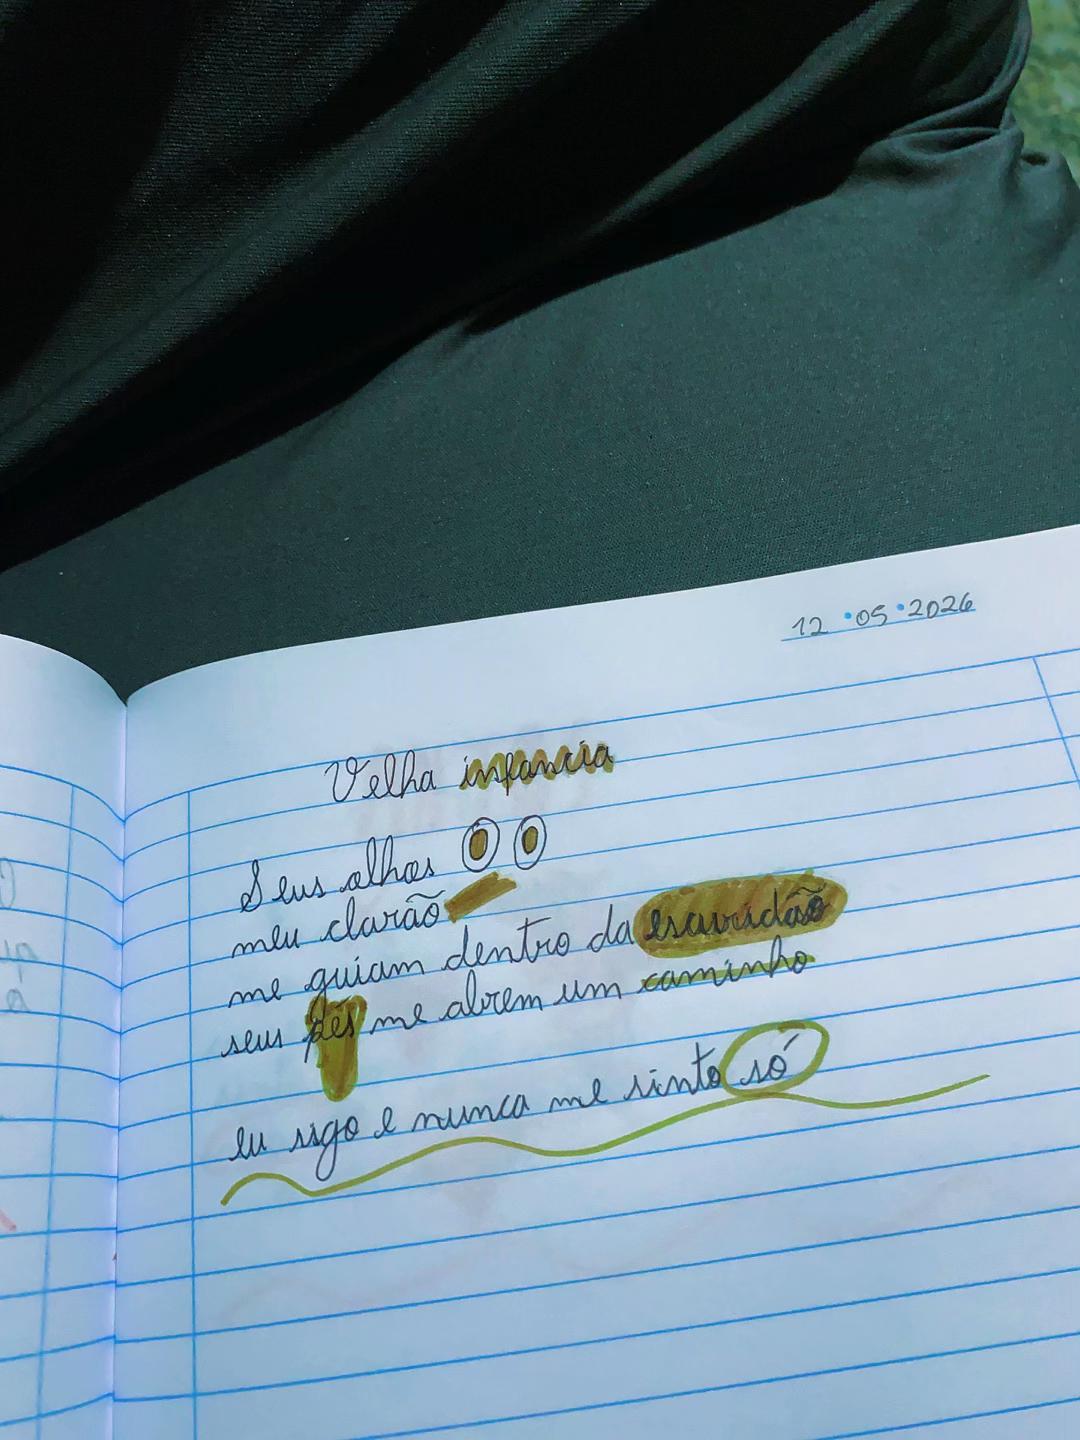 12 • 05 • 2026
Velha infancia
Seus olhos
meu clarão
me guiam dentro da escuridão
seus pés me abrem um caminho
eu sigo e nunca me sinto só